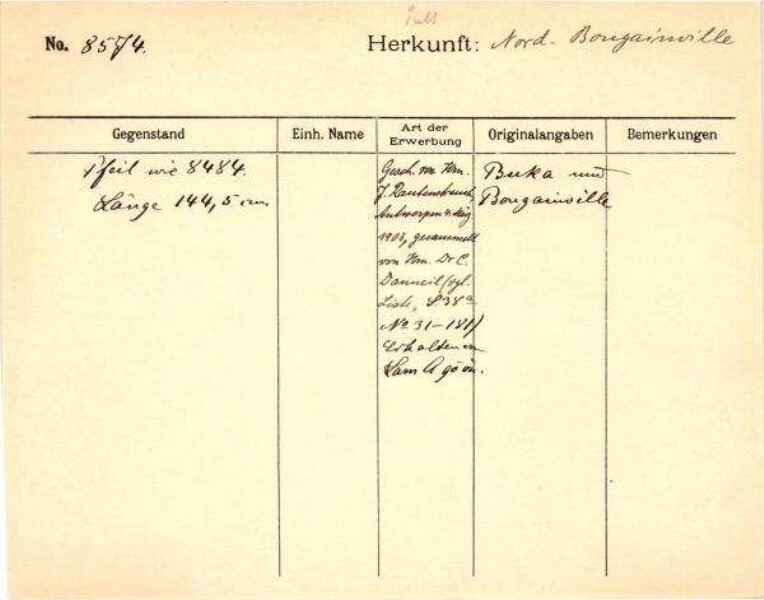 No. 8574.
Herkunft: Nord-Bougainville
Gegenstand
Einh. Name
Art der
Erwerbung
Originalangaben
Bemerkungen
Pfeil wie 8484.
Länge 144,5 cm
Gesch. von Hrn.
J. Rautenstrauch,
Antwerpen
1903, gesammelt
von Hrn. Dr C.
Danneil (vgl.
Liste, S 38a
No 31-181)
Erhalten von
Buka und
Bougainville